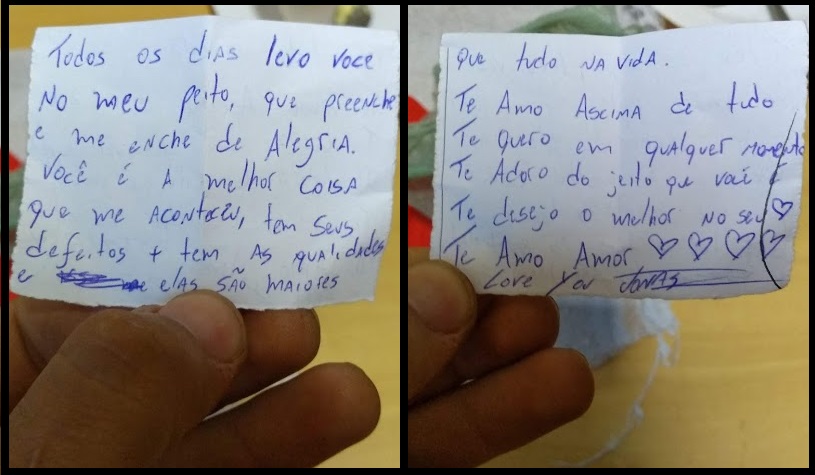 Todos os dias levo voce
No meu peito, que preenche
e me enche de Alegria.
Você é a melhor coisa
que me aconteceu, tem seus
defeitos + tem as qualidades
e elas são maiores
que tudo na vida.
Te Amo Ascima de tudo
Te quero em qualquer momento
Te Adoro do jeito que você é
Te desejo o melhor no seu ♡
Te Amo Amor ♡ ♡ ♡ ♡
Love You Jonas